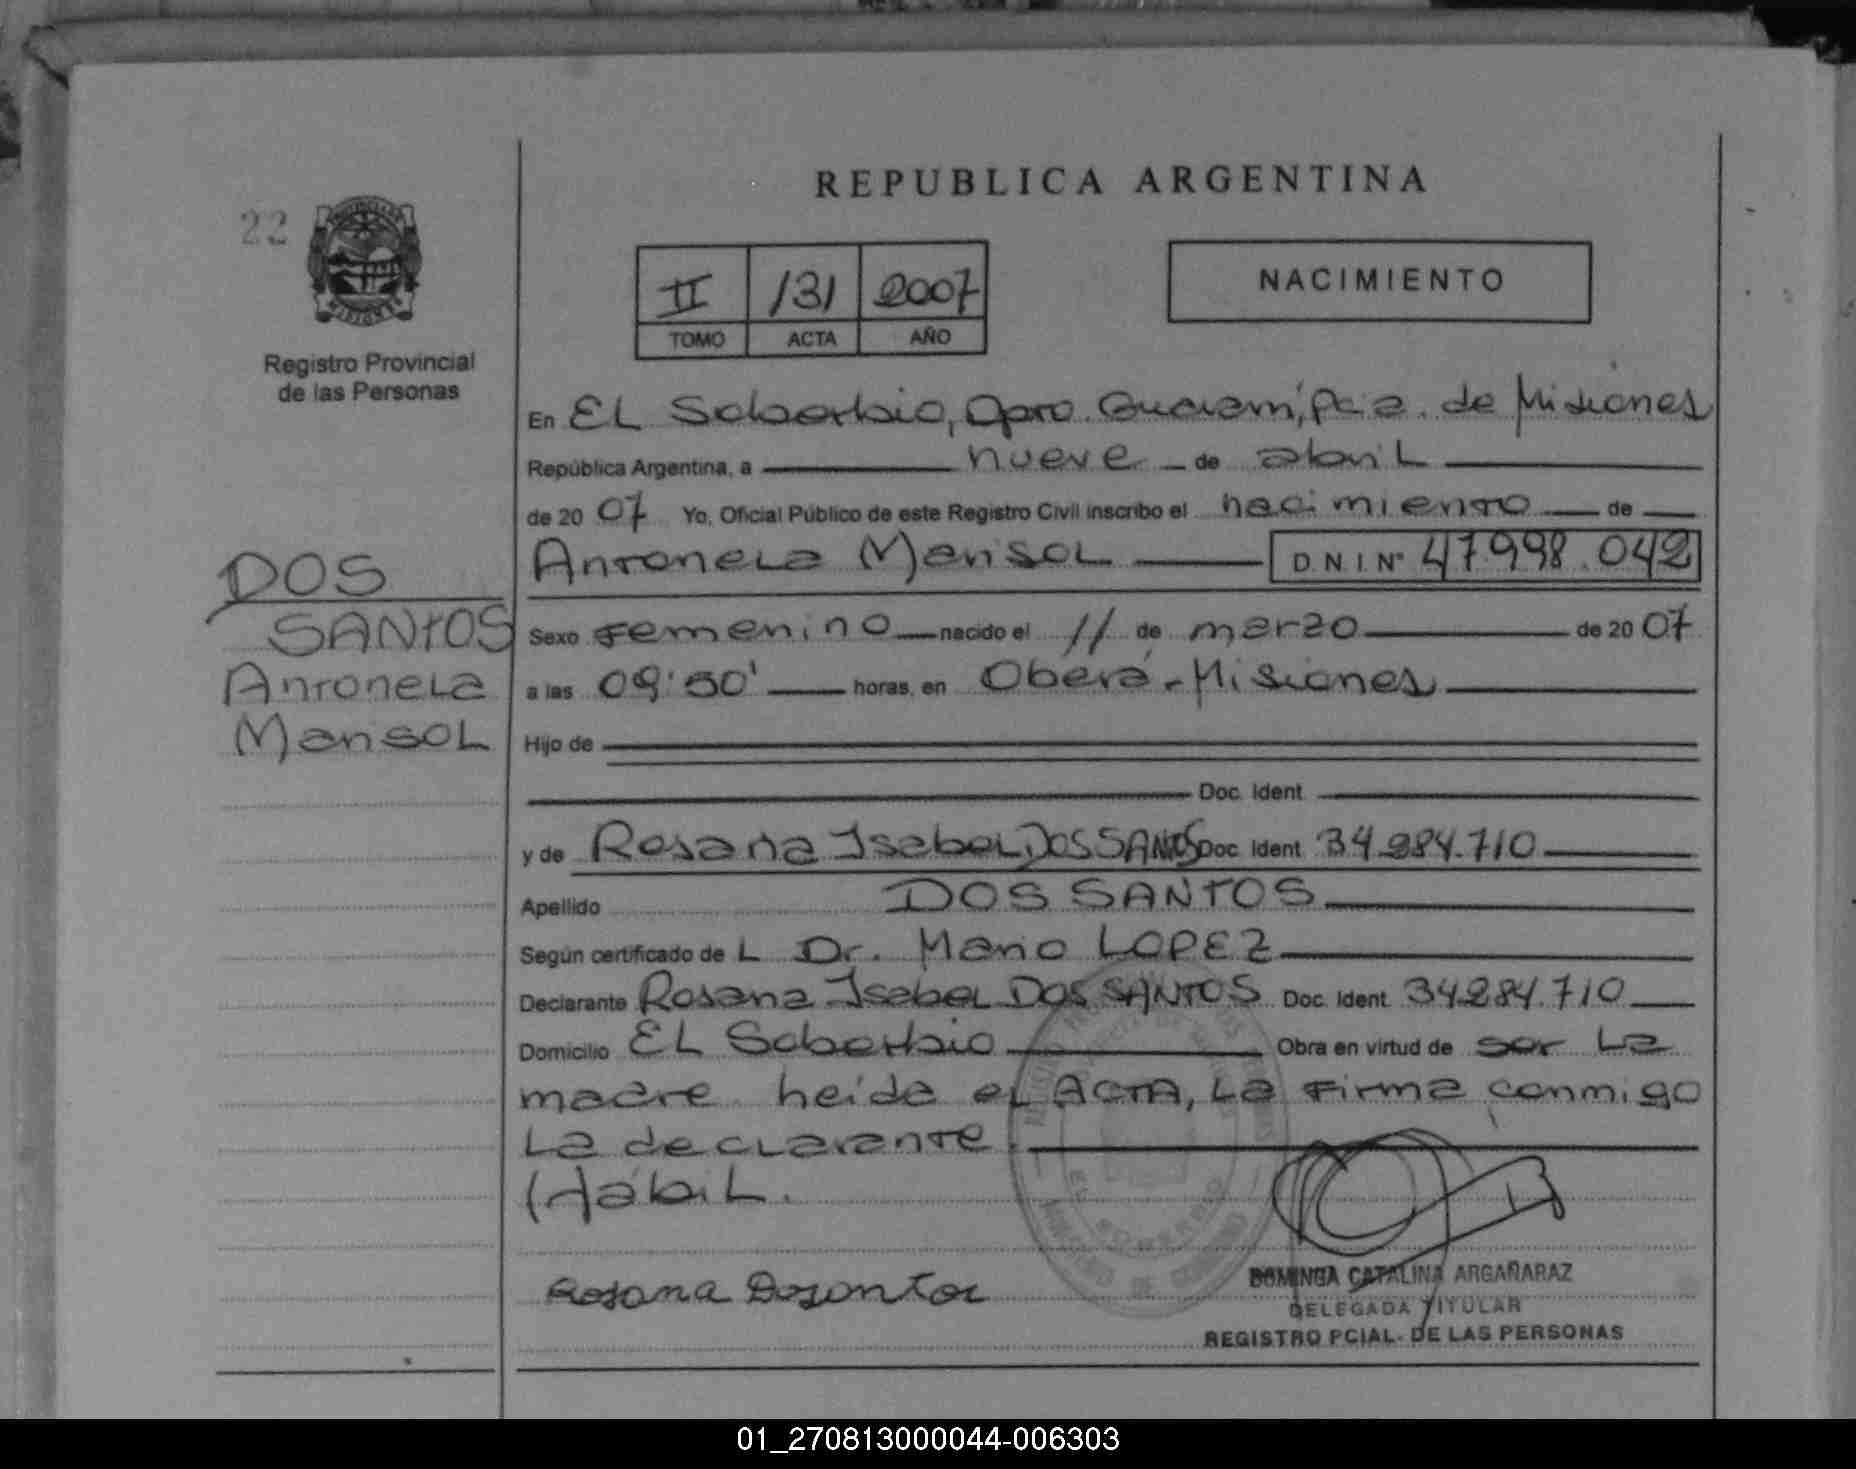 REPUBLICA ARGENTINA
22
II 131 2007
TOMO ACTA AÑO
NACIMIENTO
Registro Provincial
de las Personas
En EL Soberbio, Dpto. Guaraní, Pcia. de Misiones
República Argentina, a nueve de abril
de 20 07 Yo, Oficial Público de este Registro Civil inscribo el nacimiento de
Antonela Marisol D.N.I. Nº 47.998.042
DOS
SANTOS
Antonela
Marisol
Sexo Femenino nacido el 11 de marzo de 20 07
a las 09:50' horas, en Oberá - Misiones
Hijo de
Doc. Ident.
y de Rosana Isabel DOS SANTOS Doc. Ident. 34.284.710
Apellido DOS SANTOS
Según certificado de L Dr. Mario LOPEZ
Declarante Rosana Isabel DOS SANTOS Doc. Ident. 34.284.710
Domicilio EL Soberbio Obra en virtud de ser La
madre heida el ACTA, La Firma conmigo
La declarante.
Hábil.
Rosana Dosantos
DOMINGA CATALINA ARGAÑARAZ
DELEGADA TITULAR
REGISTRO PCIAL. DE LAS PERSONAS
01_270813000044-006303